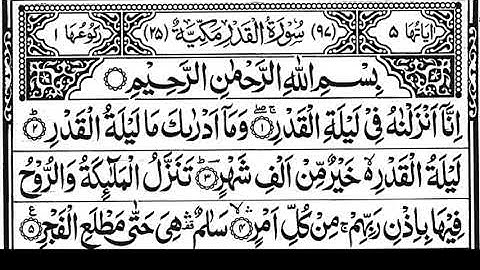 اٰیَاتُهَا ۵ (۹۷) سُوْرَةُ الْقَدْرِ مَكِّيَّةٌ (۲۵) رُكُوْعُهَا ۱
بِسْمِ اللهِ الرَّحْمٰنِ الرَّحِيْمِ
اِنَّاۤ اَنْزَلْنٰهُ فِیْ لَیْلَةِ الْقَدْرِ ۚۖ ۱ وَمَاۤ اَدْرٰىكَ مَا لَیْلَةُ الْقَدْرِ ؕ ۲
لَیْلَةُ الْقَدْرِ ۙ۬ خَیْرٌ مِّنْ اَلْفِ شَهْرٍ ؕؔ ۳ تَنَزَّلُ الْمَلٰٓىِٕكَةُ وَالرُّوْحُ
فِیْهَا بِاِذْنِ رَبِّهِمْ ۚ مِنْ كُلِّ اَمْرٍ ۙۛ ۴ سَلٰمٌ ۛ۫ هِیَ حَتّٰی مَطْلَعِ الْفَجْرِ ۵ ع